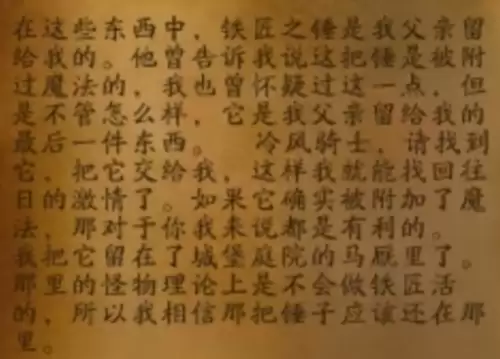 在这些东西中，铁匠之锤是我父亲留
给我的。他曾告诉我说这把锤是被附
过魔法的，我也曾怀疑过这一点，但
是不管怎么样，它是我父亲留给我的
最后一件东西。 冷风骑士，请找到
它，把它交给我，这样我就能找回往
日的激情了。如果它确实被附加了魔
法，那对于你我来说都是有利的。
我把它留在了城堡庭院的马厩里了。
那里的怪物理论上是不会做铁匠活
的，所以我相信那把锤子应该还在那
里。